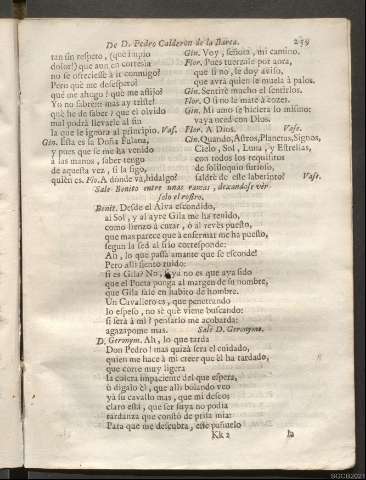 De D. Pedro Calderon de la Barca. 259
tan sin respeto, (què impio
dolor!) que aun en cortesia
no se ofreciesse à ir conmigo?
Pero què me desespero!
què me ahugo! què me aflijo!
Yo no sabrème mas ay triste!
què he de saber? que el olvido
mal podrà llevarle al fin
la que le ignora al principio. Vas.
Gin. Esta es la Doña Fulana,
y pues que se me ha venido
à las manos, saber tengo
de aquesta vez, si la sigo,
quièn es. Flo. A dònde và, hidalgo?
Gin. Voy, señora, mi camino.
Flor. Pues tuerzale por aora,
que si no, le doy aviso,
que avrà quien le muela à palos.
Gin. Sentirè mucho el sentirlos.
Flor. O si no le mate à cozes.
Gin. Mi amo se hiciera lo mismo:
vaya uced con Dios.
Flor. A Dios. Vase.
Gin. Quando, Astros, Planetas, Signos,
Cielo, Sol, Luna, y Estrellas,
con todos los requisitos
de soliloquio furioso,
saldrè de este laberinto? Vase.
Sale Benito entre unas ramas, dexandose vèr
solo el rostro.
Benit. Desde el Alva escondido,
al Sol, y al ayre Gila me ha tenido,
como lienzo à curar, ò al revès puesto,
que mas parece que à enfermar me ha puesto,
segun la sed al sitio corresponde:
Ah, lo que passa amante que se esconde!
Pero alli siento ruido:
si es Gila? No, si ya no es que aya sido
que el Poeta ponga al margen de su nombre,
que Gila sale en habito de hombre.
Un Cavallero es, que penetrando
lo espeso, no sè què viene buscando:
si serà à mi? pensarlo me acobarda:
agazapome mas. Sale D. Geronymo.
D. Geronym. Ah, lo que tarda
Don Pedro! mas quizà serà el cuidado,
quien me hace à mi creer que èl ha tardado,
que corre muy ligera
la colera impaciente del que espera,
ò digalo èl, que alli bolando veo
yà su cavallo mas, que mi deseo;
claro està, que ser suya no podia
tardanza que constò de prisa mia:
Para que me descubra, este pañuelo
Kk 2 la
SGCB2021